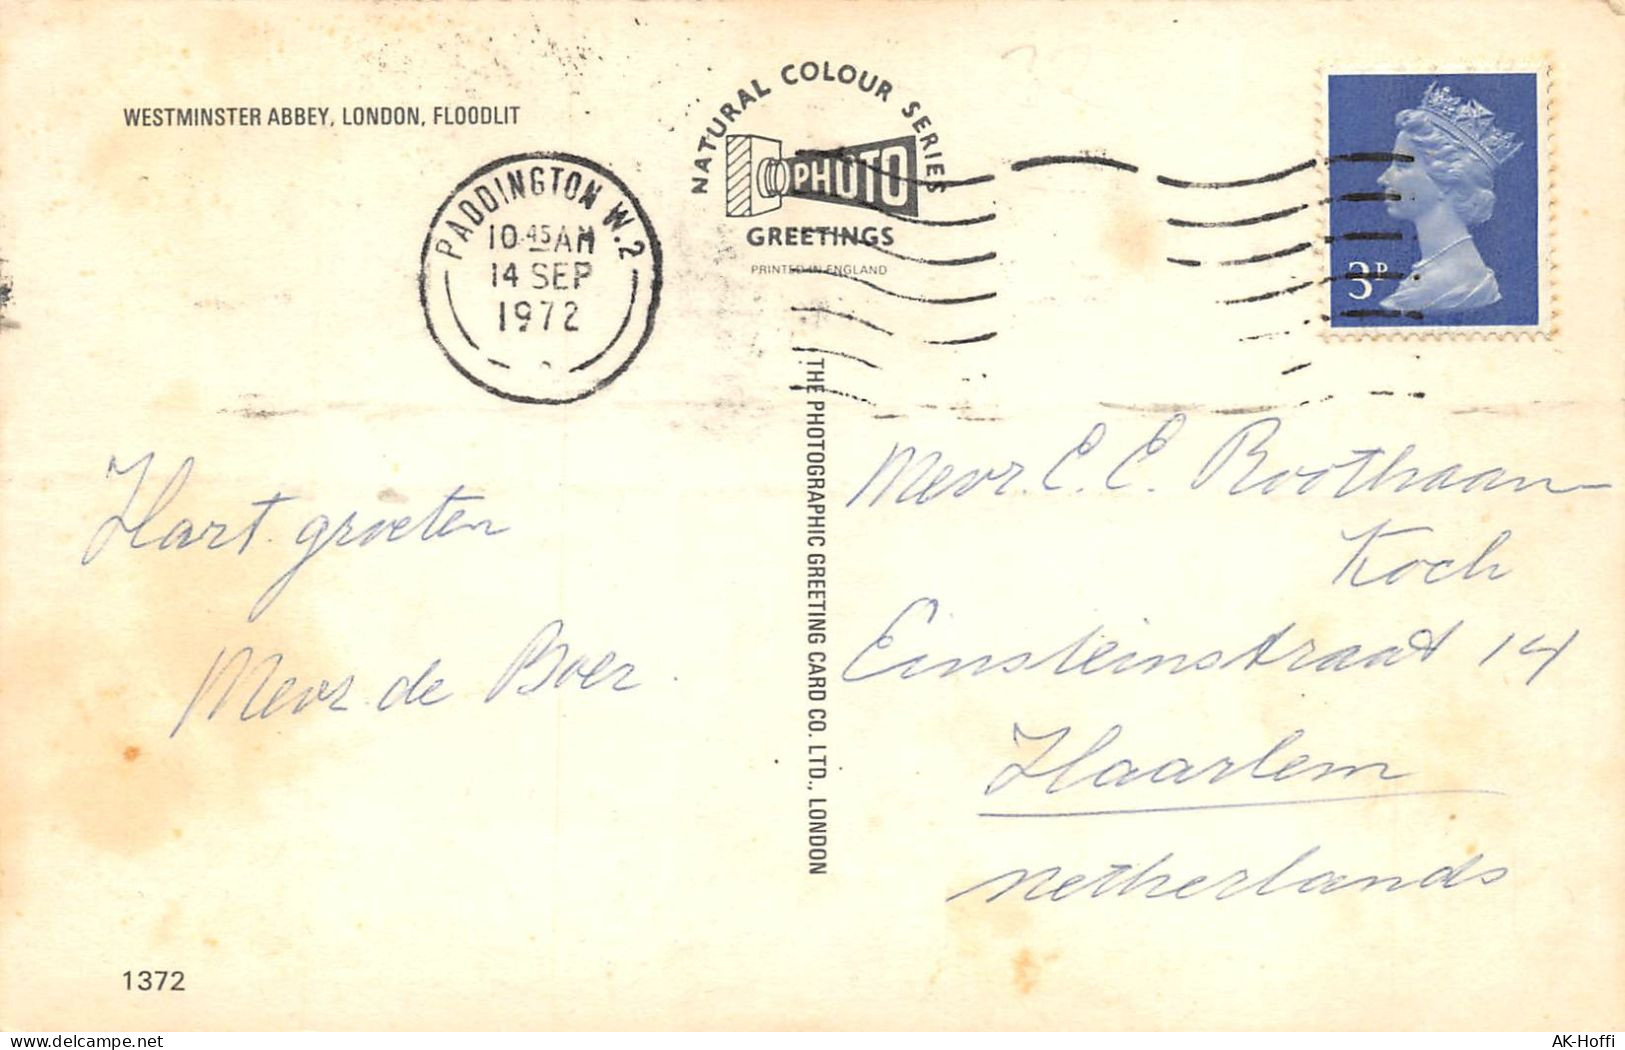 WESTMINSTER ABBEY, LONDON, FLOODLIT
PADDINGTON W.2
10.45 AM
14 SEP
1972
NATURAL COLOUR SERIES
PHOTO
GREETINGS
PRINTED IN ENGLAND
3P
THE PHOTOGRAPHIC GREETING CARD CO. LTD., LONDON
Hart. groeten
Mevr. de Boer.
Mevr. C. C. Roothaan-
Koch
Einsteinstraat 14
Haarlem
Netherlands
1372
delcampe.net
AK-Hoffi